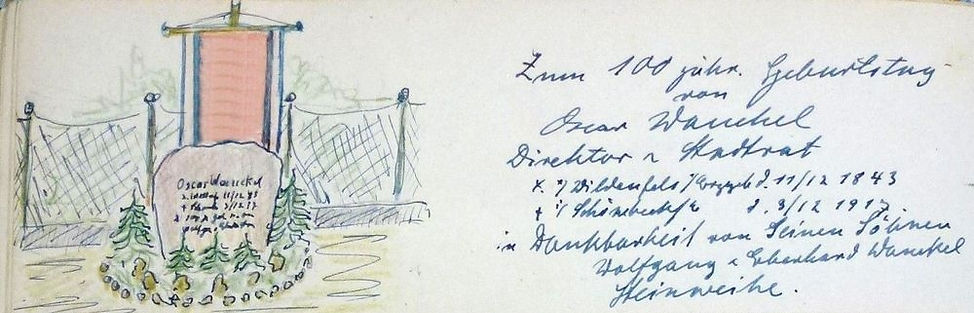 Oscar Wanckel
Zum 100 jähr. Geburtstag
von
Oscar Wanckel
Direktor u Stadtrat
*. i/ Wildenfels i/Erzgeb d. 11/12 1843
+ i/ Schönebeck d. 3/12 1917
in Dankbarkeit von Seinen Söhnen
Wolfgang u Eberhard Wanckel
Steinweihe.